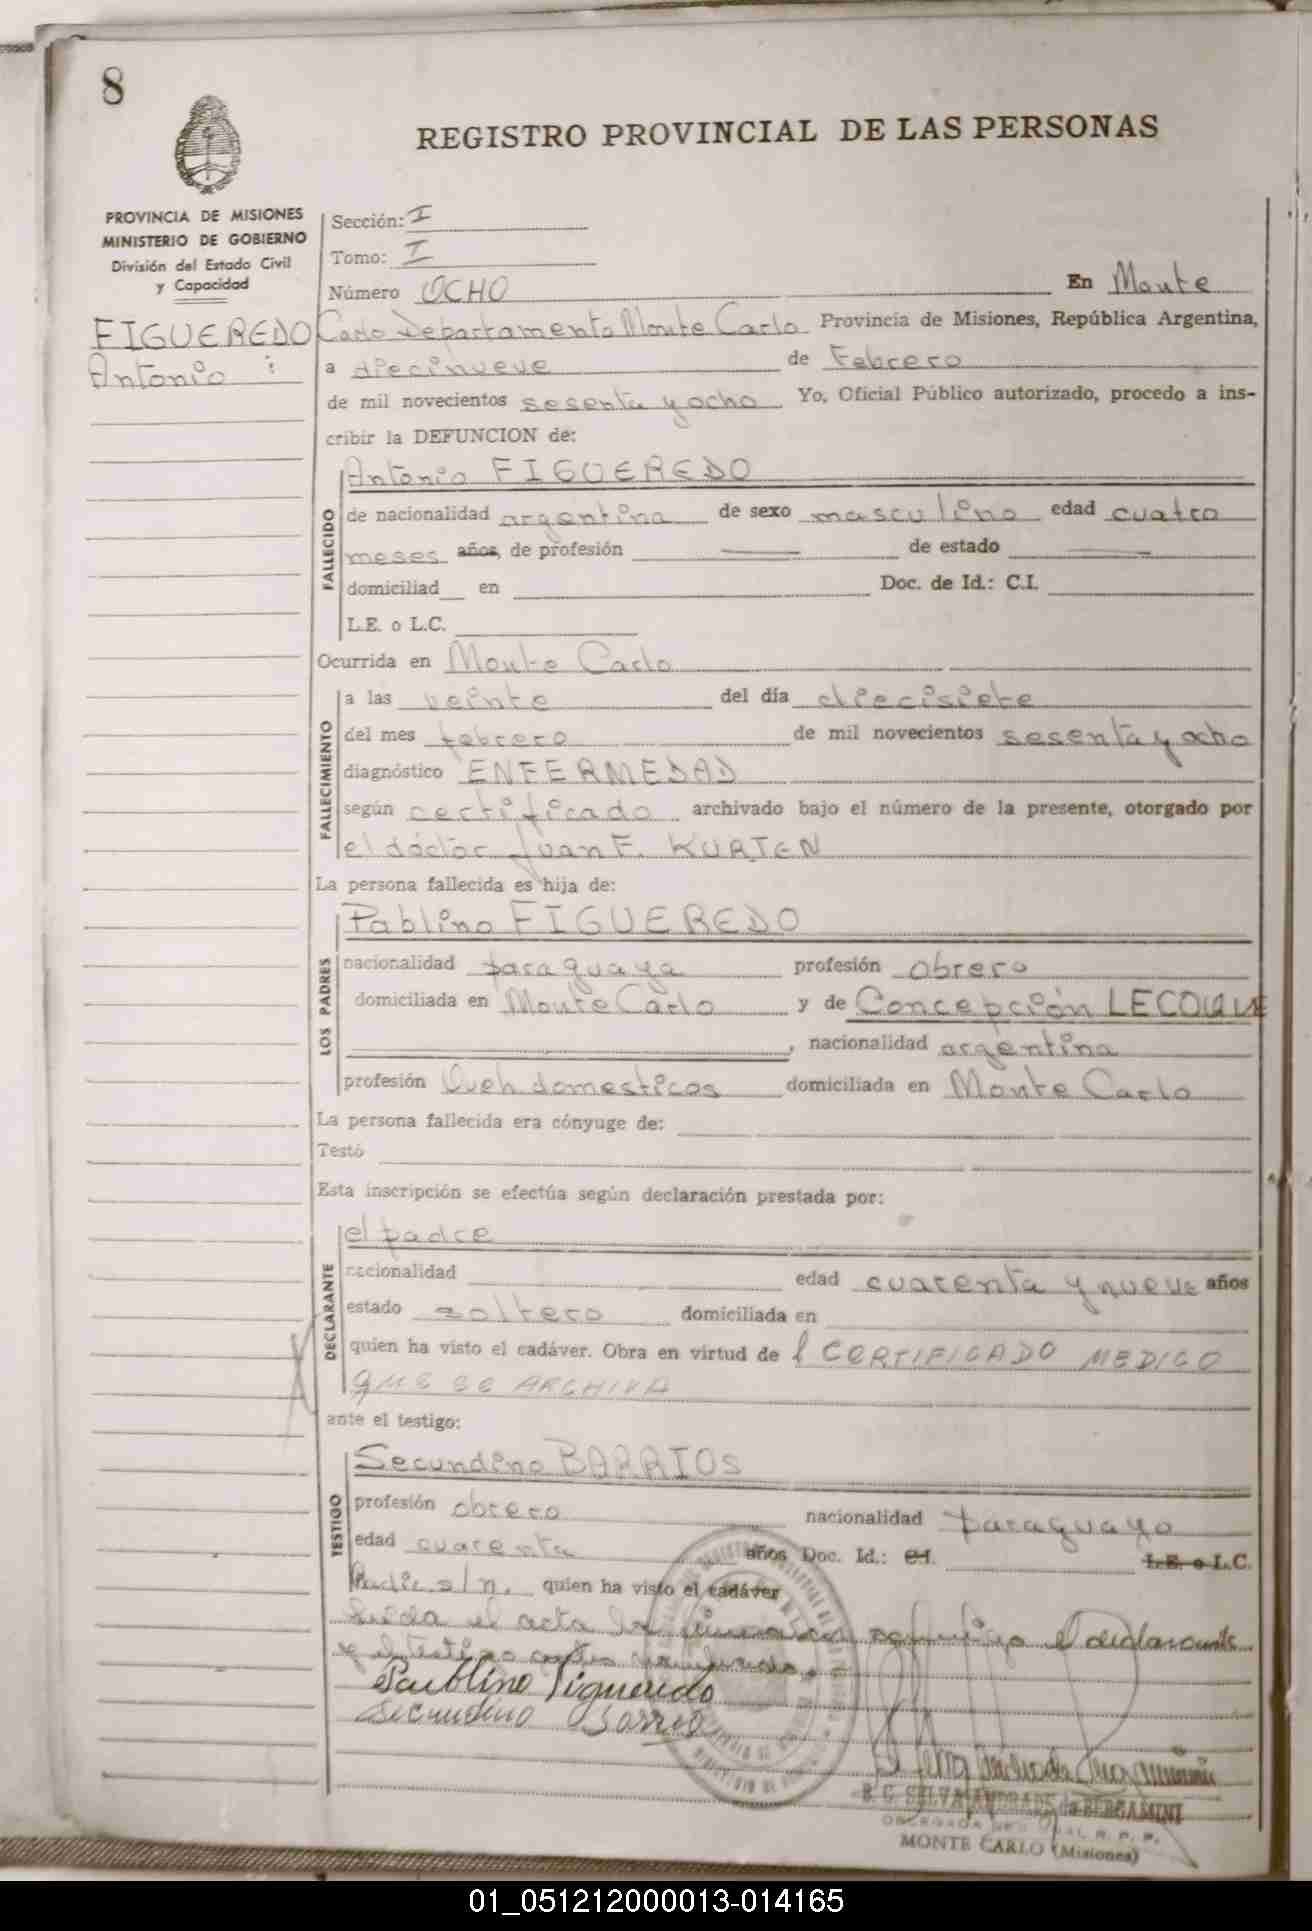 8
REGISTRO PROVINCIAL DE LAS PERSONAS
PROVINCIA DE MISIONES
MINISTERIO DE GOBIERNO
División del Estado Civil
y Capacidad
FIGUEREDO
Antonio
Sección: I
Tomo: I
Número OCHO En Monte
Carlo Departamento Monte Carlo Provincia de Misiones, República Argentina,
a diecinueve de Febrero
de mil novecientos sesenta y ocho Yo, Oficial Público autorizado, procedo a ins-
cribir la DEFUNCION de:
FALLECIDO
Antonio FIGUEREDO
de nacionalidad argentina de sexo masculino edad cuatro
meses años, de profesión de estado
domiciliad en Doc. de Id.: C.I.
L.E. o L.C.
Ocurrida en Monte Carlo
FALLECIMIENTO
a las veinte del día diecisiete
del mes febrero de mil novecientos sesenta y ocho
diagnóstico ENFERMEDAD
según certificado archivado bajo el número de la presente, otorgado por
el dóctor Juan F. KURTEN
La persona fallecida es hija de:
LOS PADRES
Pablino FIGUEREDO
nacionalidad paraguaya profesión obrero
domiciliada en Monte Carlo y de Concepción LECOQUE
, nacionalidad argentina
profesión Queh domesticos domiciliada en Monte Carlo
La persona fallecida era cónyuge de:
Testó
Esta inscripción se efectúa según declaración prestada por:
DECLARANTE
el padre
nacionalidad edad cuarenta y nueve años
estado soltero domiciliada en
quien ha visto el cadáver. Obra en virtud de l CERTIFICADO MEDICO
que se ARCHIVA
ante el testigo:
TESTIGO
Secundino BARRIOS
profesión obrero nacionalidad paraguayo
edad cuarenta años Doc. Id.: C.I. L.E. o L.C.
s/n. quien ha visto el cadáver
Leída el acta la conmigo el declarante
y el testigo
Pablino Figueredo
Secundino Barrios
B. C. SELVA ANDRADE de BERGAMINI
MONTE CARLO (Misiones)
01_051212000013-014165